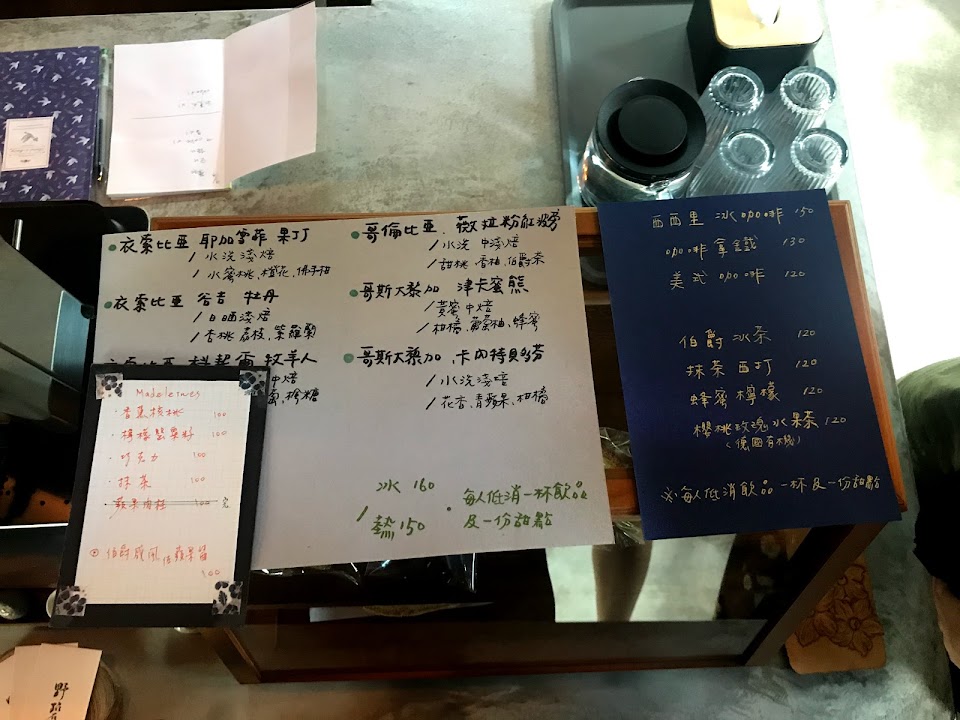 衣索比亞 耶加雪菲 果丁
/ 水洗淺焙
/ 水蜜桃、橙花、佛手柑
衣索比亞 谷吉 牡丹
/ 日晒淺焙
/ 香桃、荔枝、紫羅蘭
牧羊人
中焙
檸檬糖
哥倫比亞、薇拉粉紅波旁
/ 水洗 中淺焙
/ 甜桃、香柚、伯爵茶
哥斯大黎加 津卡蜜熊
/ 黃蜜中焙
/ 柑橘、葡萄柚、蜂蜜
哥斯大黎加、卡內特貝多芬
/ 水洗淺焙
/ 花香、青蘋果、柑橘
冰 160
/ 熱 150
。每人低消一杯飲品
及一份甜點
Madeleines
· 香蕉核桃 100
· 檸檬堅果籽 100
· 巧克力 100
· 抹茶 100
蘋果肉桂 100 元
伯爵戚風
西西里 冰咖啡 150
咖啡拿鐵 130
美式咖啡 120
伯爵 冰茶 120
抹茶西打 120
蜂蜜檸檬 120
櫻桃玫瑰冰果茶 120
(德國有機)
※每人低消飲品一杯及一份甜點
野